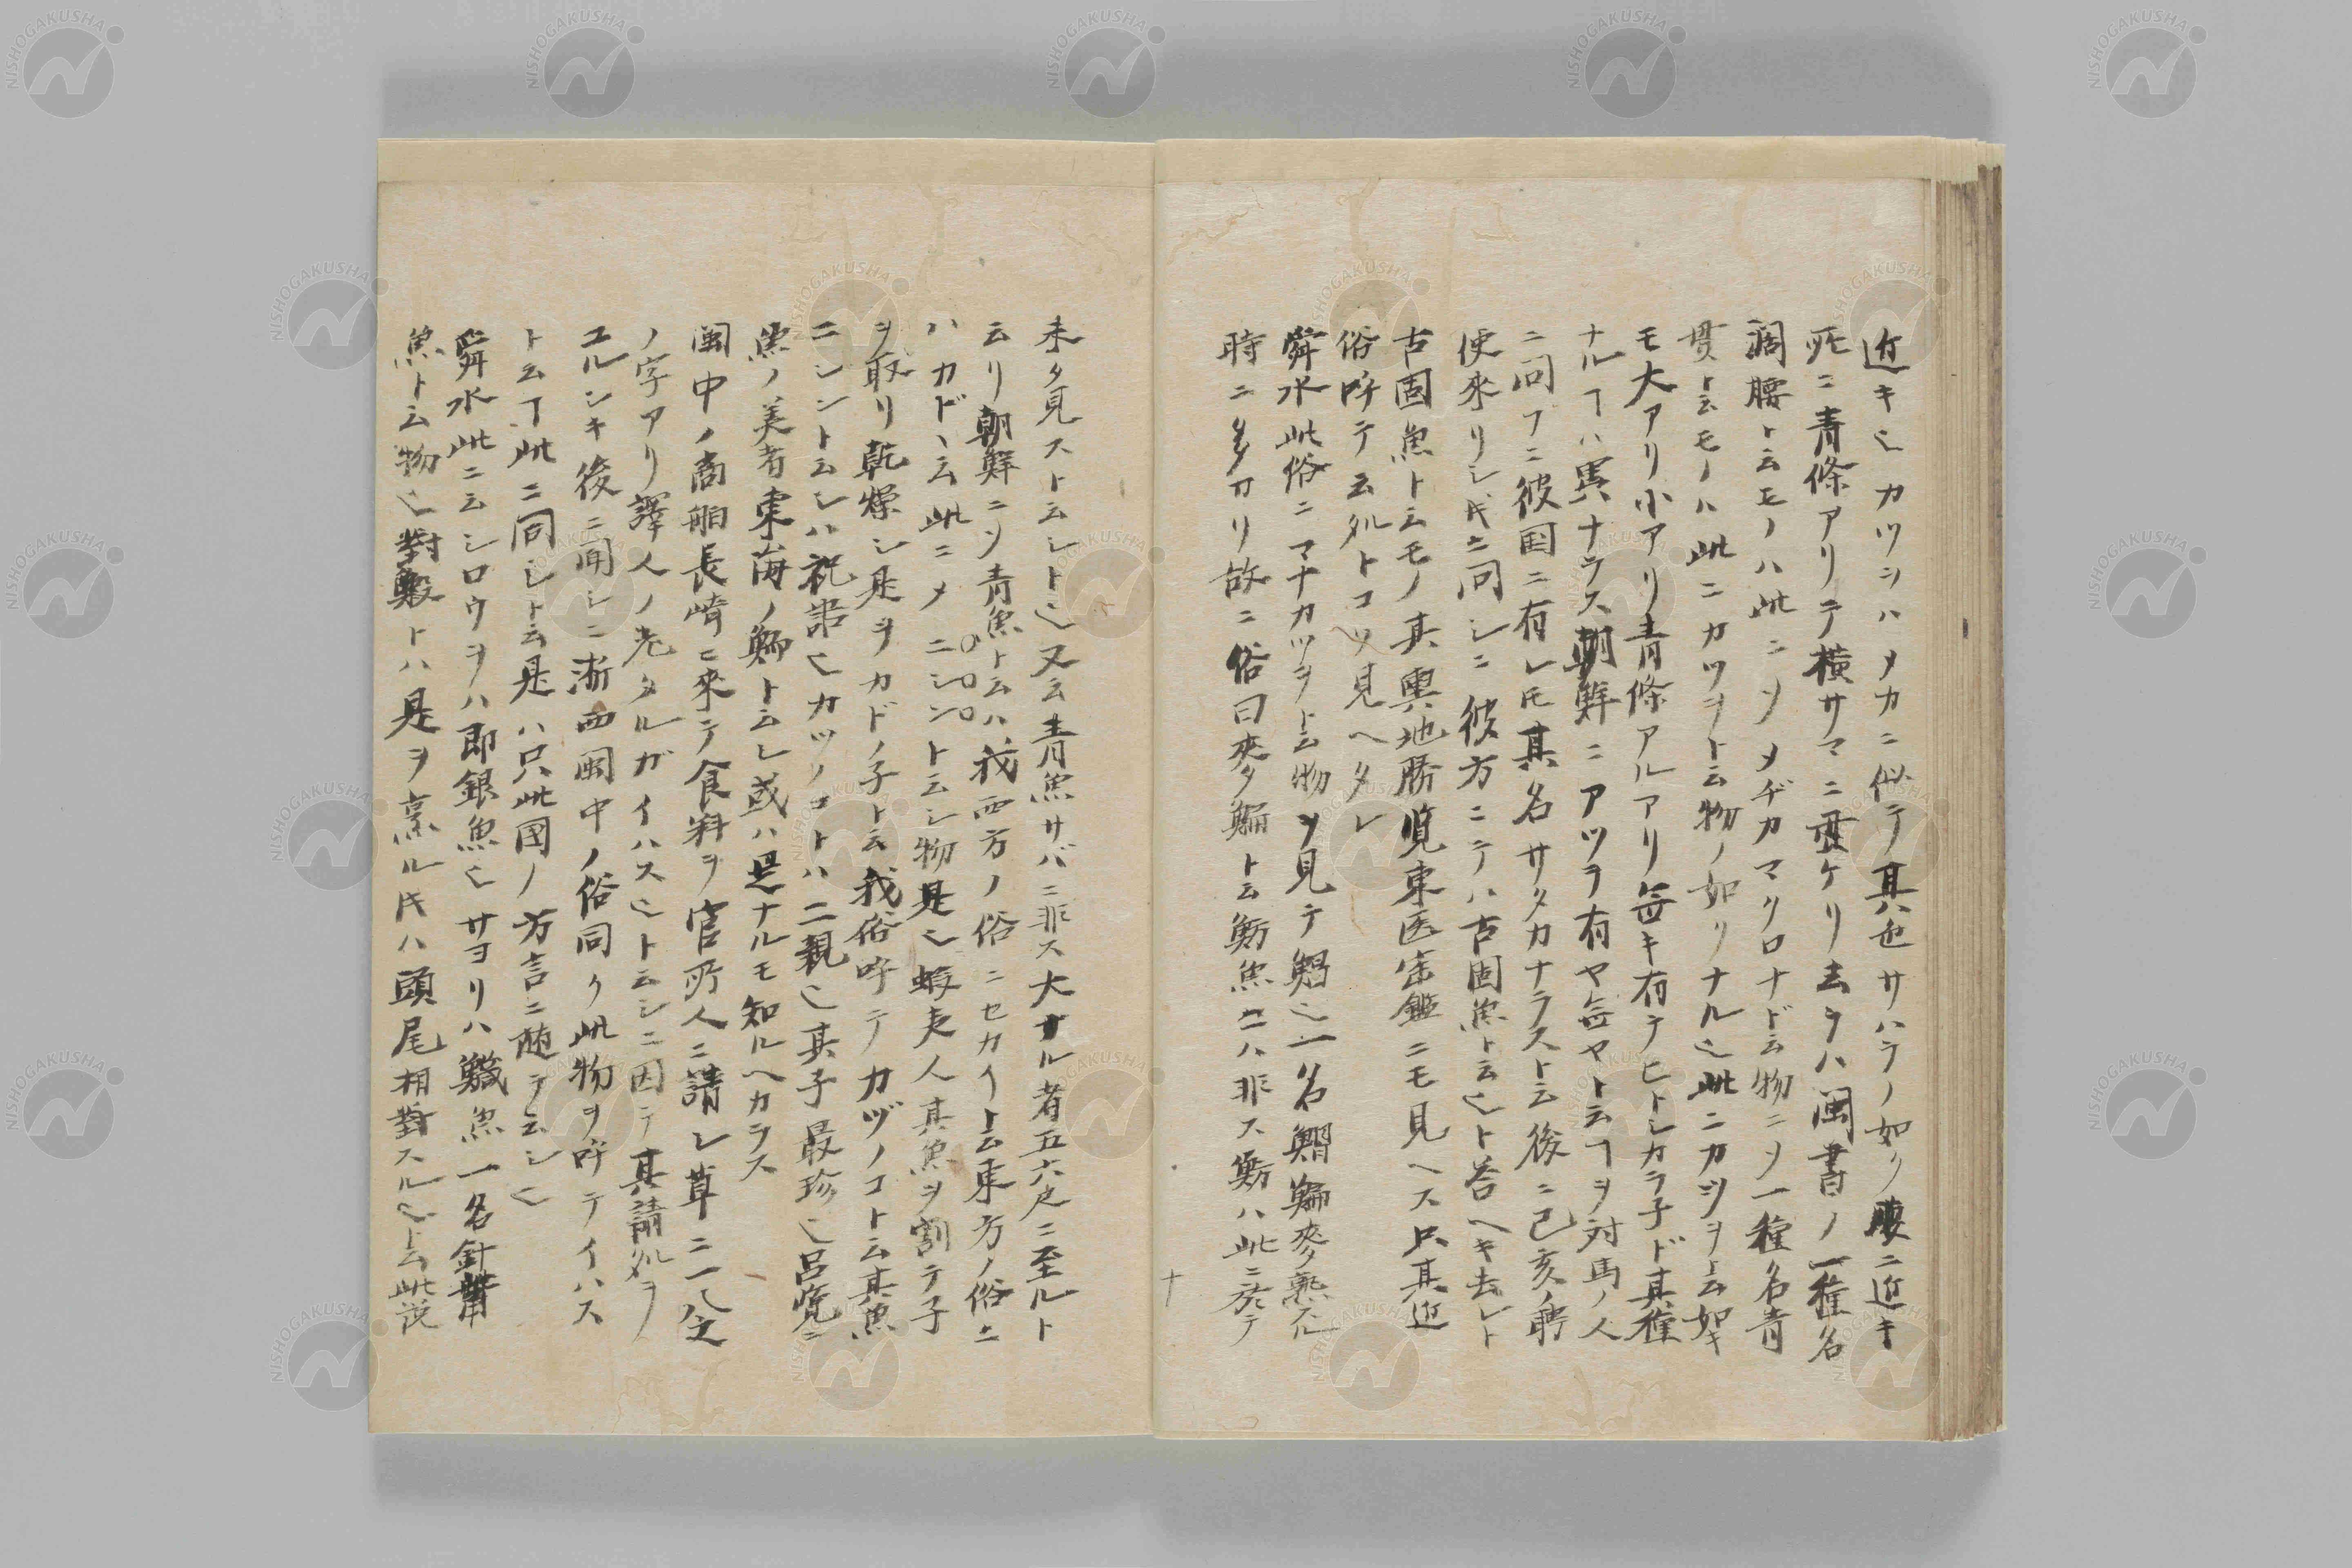 近キ也カツヲハメカニ似テ其色サハラノ如ク腹ニ近キ
死ニ青條アリテ横サマニ亜ケリ去ラハ閩書ノ一種名
濶腰ト云モノハ此ニソメヂカマクロナド云物ニソ一種名青
貫ト云モノハ此ニカツヲト云物ノ如クナル也此ニカツヲト云如キ
モ大アリ小アリ青條アルアリ無キ有テヒトシカラ子ド其種
ナルヿハ異ナラス朝鮮ニアツテ有ヤ無ヤト云ヿヲ対馬ノ人
ニ問フニ彼国ニ有レ𪜈其名サタカナラスト云後ニ己亥ノ聘
使來リシ時ニ問シニ彼方ニテハ古固魚ト云也ト答ヘキ去レト
古固魚ト云モノ其輿地勝覧東医宝鑑ニモ見ヘス只其近
俗呼テ云処トコソ見ヘタレ
舜水此俗ニマナカツヲト云物ヲ見テ鯧也一名鯧鯿麥熟スル
時ニ多カリ故ニ俗曰麥鯿ト云魴魚ニハ非ス魴ハ此ニ於テ
未タ見ストシト也又云青魚サバニ非ス大ナル者五六尺ニ至ルト
云リ朝鮮ニソ青魚ト云ハ我西方ノ俗ニセカイト云東方ノ俗ニ
ハカドト云此ニメニシント云シ物是也蝦夷人其魚ヲ割テ子
ヲ取リ乾燥シ是ヲカドノ子ト云我俗呼テカヅノコト云其魚
ニシント云シハ祝語也カツノコトハ二親也其子最珍也呂覧ニ
魚ノ美者東海ノ鮞ト云シ或ハ是ナルモ知ルヘカラス
閩中ノ商舶長崎ニ來テ食料ヲ官所人ニ請シ草ニ一𠆢仝
ノ字アリ譯人ノ老タルガイハスヒト云シニ因テ其請処ヲ
ユルシキ後ニ聞シニ浙西閩中ノ俗同ク此物ヲ呼テイハス
ト云ヿ此ニ同シト云是ハ只此國ノ方言ニ随テ云シ也
舜水此ニ云シロウヲハ即銀魚也サヨリハ鱵魚一名針觜
魚ト云物也對鰕トハ是ヲ烹ル時ハ頭尾相對スル也ト云此説